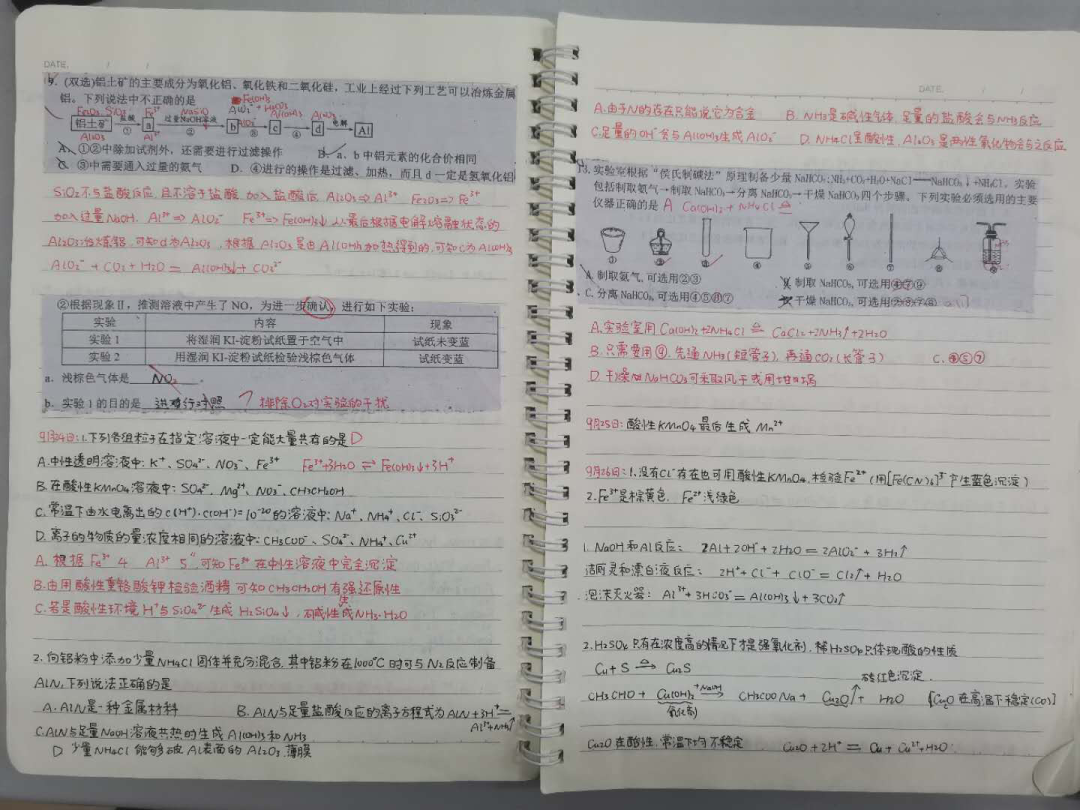 DATE. / /
9. (双选)铝土矿的主要成分为氧化铝、氧化铁和二氧化硅，工业上经过下列工艺可以冶炼金属
铝。下列说法中不正确的是
铝土矿 盐酸 ① a 过量NaOH溶液 ② b ③ c ④ d 电解 Al
A、①②中除加试剂外，还需要进行过滤操作 B、a、b中铝元素的化合价相同
C、③中需要通入过量的氨气 D、④进行的操作是过滤、加热，而且d一定是氢氧化铝
SiO₂不与盐酸反应,且不溶于盐酸 加入盐酸后 Al₂O₃⇒Al³⁺ Fe₂O₃⇒Fe³⁺
加入过量NaOH. Al³⁺⇒AlO₂⁻ Fe³⁺⇒Fe(OH)₃↓ 最后根据电解熔融状态的
Al₂O₃冶炼铝,可知d为Al₂O₃,根据Al₂O₃是由Al(OH)₃加热得到的,可知c为Al(OH)₃
AlO₂⁻+CO₂+H₂O=Al(OH)₃↓+CO₃²⁻
②根据现象Ⅱ，推测溶液中产生了NO，为进一步确认，进行如下实验：
实验 内容 现象
实验1 将湿润KI-淀粉试纸置于空气中 试纸未变蓝
实验2 用湿润KI-淀粉试纸检验浅棕色气体 试纸变蓝
a. 浅棕色气体是 NO₂ .
b. 实验1的目的是 进行对照 排除O₂对实验的干扰
9月24日:1.下列各组粒子在指定溶液中一定能大量共存的是D
A.中性透明溶液中: K⁺、SO₄²⁻、NO₃⁻、Fe³⁺ Fe³⁺+3H₂O⇌Fe(OH)₃↓+3H⁺
B.在酸性KMnO₄溶液中: SO₄²⁻、Mg²⁺、NO₃⁻、CH₃CH₂OH
C.常温下由水电离出的c(H⁺)·c(OH⁻)=10⁻²⁰的溶液中: Na⁺、NH₄⁺、Cl⁻、SiO₃²⁻
D.离子的物质的量浓度相同的溶液中: CH₃COO⁻、SO₄²⁻、NH₄⁺、Cu²⁺
A.根据Fe³⁺ 4 Al³⁺ 5 可知Fe³⁺在中性溶液中完全沉淀
B.由用酸性重铬酸钾检验酒精可知CH₃CH₂OH有强还原性
C.若是酸性环境H⁺与SiO₃²⁻生成H₂SiO₃↓,碱性生成NH₃·H₂O
2.向铝粉中添加少量NH₄Cl固体并充分混合,其中铝粉在1000℃时可与N₂反应制备
AlN,下列说法正确的是
A.AlN是一种金属材料 B.AlN与足量盐酸反应的离子方程式为AlN+3H⁺=
Al³⁺+NH₃↑
C.AlN与足量NaOH溶液共热时生成Al(OH)₃和NH₃
D 少量NH₄Cl能够破坏Al表面的Al₂O₃薄膜
DATE / /
A.由于N的存在只能说它为合金 B.NH₃是碱性气体,足量的盐酸会与NH₃反应
C.足量的OH⁻会与Al(OH)₃生成AlO₂⁻ D.NH₄Cl呈酸性,Al₂O₃是两性氧化物会与之反应
13.实验室根据“侯氏制碱法”原理制备少量NaHCO₃:NH₃+CO₂+H₂O+NaCl=NaHCO₃↓+NH₄Cl，实验
包括制取氨气→制取NaHCO₃→分离NaHCO₃→干燥NaHCO₃四个步骤。下列实验必须选用的主要
仪器正确的是 A Ca(OH)₂+NH₄Cl△
① ② ③ ④ ⑤ ⑥ ⑦ ⑧ ⑨
A. 制取氨气,可选用②③ B. 制取NaHCO₃,可选用④⑦⑨
C. 分离NaHCO₃,可选用④⑤⑥⑦ D. 干燥NaHCO₃,可选用
A.实验室用Ca(OH)₂+2NH₄Cl≜CaCl₂+2NH₃↑+2H₂O
B.只需要用⑨,先通NH₃(短管子),再通CO₂(长管子) C.④⑤⑦
D.干燥NaHCO₃可采取风干或用坩埚
9月25日:酸性KMnO₄最后生成Mn²⁺
9月26日:1.没有Cl⁻存在也可用酸性KMnO₄检验Fe²⁺(用[Fe(CN)₆]³⁻产生蓝色沉淀)
2.Fe³⁺是棕黄色 Fe²⁺浅绿色
1.NaOH和Al反应: 2Al+2OH⁻+2H₂O=2AlO₂⁻+3H₂↑
洁厕灵和漂白液反应: 2H⁺+Cl⁻+ClO⁻=Cl₂↑+H₂O
泡沫灭火器: Al³⁺+3HCO₃⁻=Al(OH)₃↓+3CO₂↑
2.H₂SO₄只有在浓度高的情况下才是强氧化剂,稀H₂SO₄只体现酸的性质
Cu+S ≜ Cu₂S
砖红色沉淀
CH₃CHO+Cu(OH)₂ +NaOH→ CH₃COONa+Cu₂O↑+H₂O {Cu₂O在高温下稳定(CoS)}
(氧化剂)
Cu₂O在酸性,常温下均不稳定 Cu₂O+2H⁺=Cu+Cu²⁺+H₂O